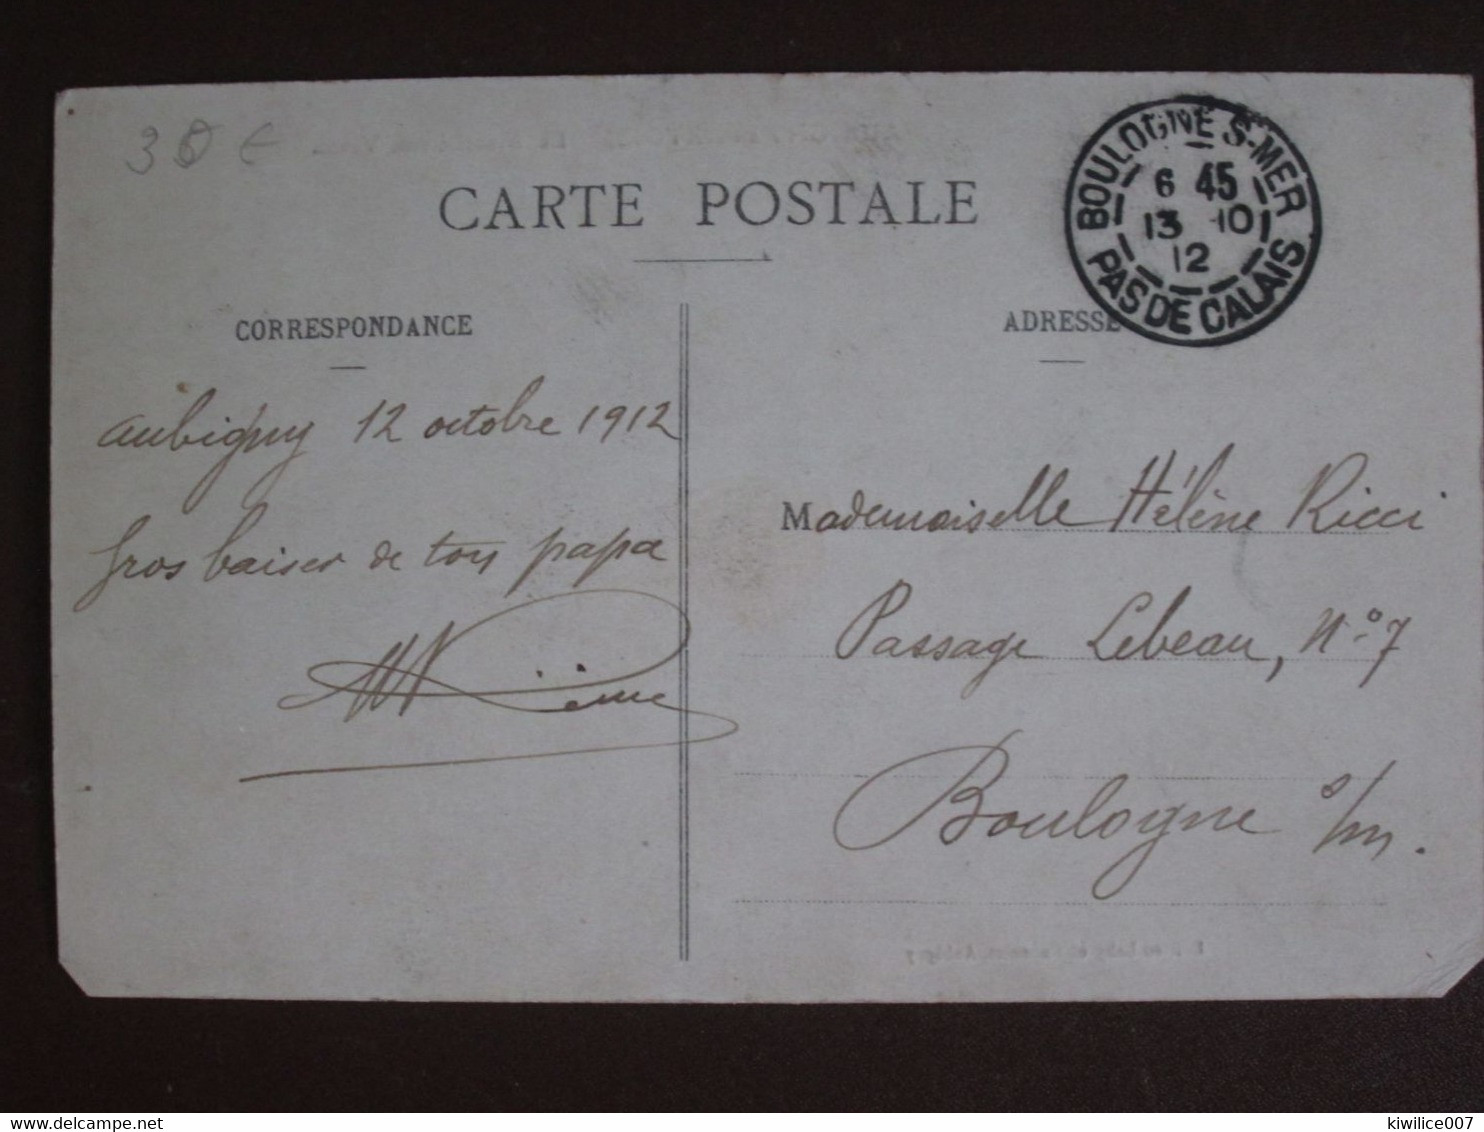 30 €
CARTE POSTALE
BOULOGNE S-MER
6 45
13 -10
12
PAS DE CALAIS
CORRESPONDANCE
Aubigny 12 octobre 1912
Gros baiser de ton papa
ADRESSE
Mademoiselle Hélène Ricci
Passage Lebeau, N° 7
Boulogne s/m.
kiwilice007